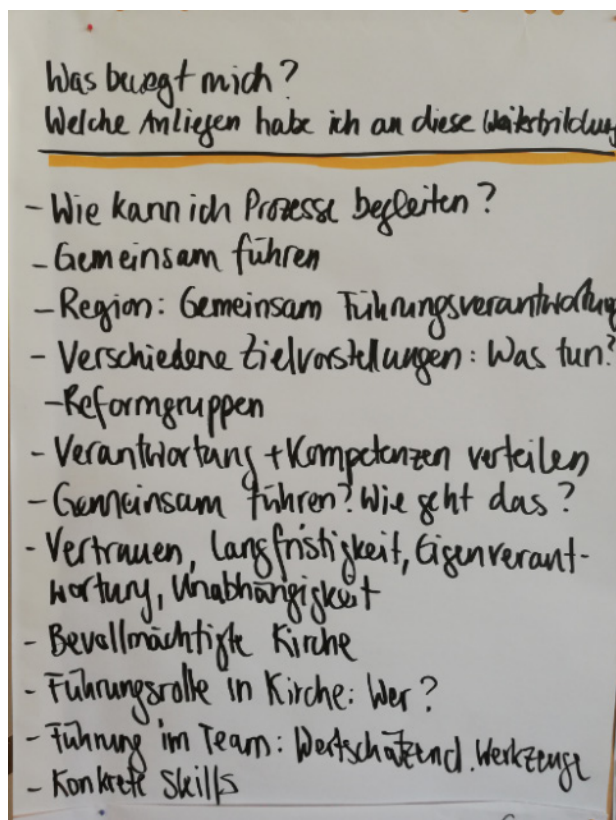 Was bewegt mich?
Welche Anliegen habe ich an diese Weiterbildung
- Wie kann ich Prozesse begleiten?
- Gemeinsam führen
- Region: Gemeinsam Führungsverantwortung
- Verschiedene Zielvorstellungen: Was tun?
- Reformgruppen
- Verantwortung + Kompetenzen verteilen
- Gemeinsam führen? Wie geht das?
- Vertrauen, Langfristigkeit, Eigenverant-
wortung, Unabhängigkeit
- Bevollmächtigte Kirche
- Führungsrolle in Kirche: Wer?
- Führung im Team: Wertschätzend. Werkzeuge
- Konkrete Skills